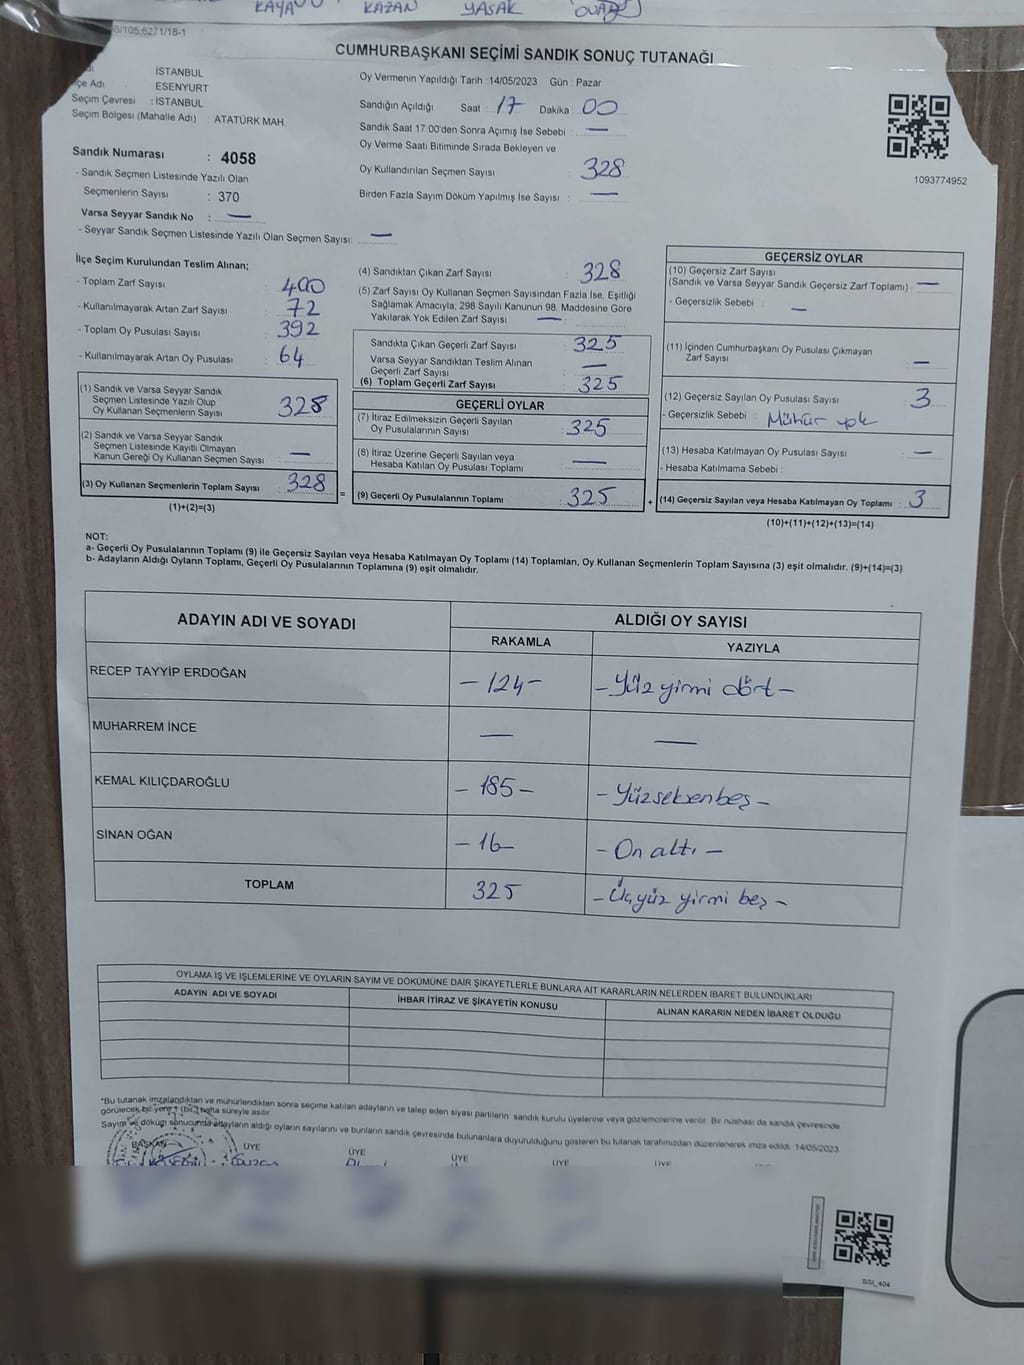 KAYA KAZAN YASAK
0/105.6271/18-1
CUMHURBAŞKANI SEÇİMİ SANDIK SONUÇ TUTANAĞI
İSTANBUL
çe Adı ESENYURT
Seçim Çevresi : İSTANBUL
Seçim Bölgesi (Mahalle Adı) : ATATÜRK MAH.
Oy Vermenin Yapıldığı Tarih : 14/05/2023 Gün : Pazar
Sandığın Açıldığı Saat : 17 Dakika 00
Sandık Saat 17:00'den Sonra Açımış İse Sebebi : —
Oy Verme Saati Bitiminde Sırada Bekleyen ve
Oy Kullandırılan Seçmen Sayısı : 328
Birden Fazla Sayım Döküm Yapılmış İse Sayısı : —
1093774952
Sandık Numarası : 4058
- Sandık Seçmen Listesinde Yazılı Olan
Seçmenlerin Sayısı : 370
Varsa Seyyar Sandık No : —
- Seyyar Sandık Seçmen Listesinde Yazılı Olan Seçmen Sayısı: —
İlçe Seçim Kurulundan Teslim Alınan;
- Toplam Zarf Sayısı : 400
- Kullanılmayarak Artan Zarf Sayısı : 72
- Toplam Oy Pusulası Sayısı : 392
- Kullanılmayarak Artan Oy Pusulası : 64
(1) Sandık ve Varsa Seyyar Sandık
Seçmen Listesinde Yazılı Olup
Oy Kullanan Seçmenlerin Sayısı : 328
(2) Sandık ve Varsa Seyyar Sandık
Seçmen Listesinde Kayıtlı Olmayan
Kanun Gereği Oy Kullanan Seçmen Sayısı : —
(3) Oy Kullanan Seçmenlerin Toplam Sayısı : 328
(1)+(2)=(3)
(4) Sandıktan Çıkan Zarf Sayısı : 328
(5) Zarf Sayısı Oy Kullanan Seçmen Sayısından Fazla İse, Eşitliği
Sağlamak Amacıyla; 298 Sayılı Kanunun 98. Maddesine Göre
Yakılarak Yok Edilen Zarf Sayısı : —
Sandıkta Çıkan Geçerli Zarf Sayısı : 325
Varsa Seyyar Sandıktan Teslim Alınan
Geçerli Zarf Sayısı : —
(6) Toplam Geçerli Zarf Sayısı : 325
GEÇERLİ OYLAR
(7) İtiraz Edilmeksizin Geçerli Sayılan
Oy Pusulalarının Sayısı : 325
(8) İtiraz Üzerine Geçerli Sayılan veya
Hesaba Katılan Oy Pusulası Toplamı : —
= (9) Geçerli Oy Pusulalarının Toplamı : 325
GEÇERSİZ OYLAR
(10) Geçersiz Zarf Sayısı
(Sandık ve Varsa Seyyar Sandık Geçersiz Zarf Toplamı) : —
- Geçersizlik Sebebi : —
(11) İçinden Cumhurbaşkanı Oy Pusulası Çıkmayan
Zarf Sayısı : —
(12) Geçersiz Sayılan Oy Pusulası Sayısı : 3
- Geçersizlik Sebebi : Mühür yok
(13) Hesaba Katılmayan Oy Pusulası Sayısı : —
- Hesaba Katılmama Sebebi :
+ (14) Geçersiz Sayılan veya Hesaba Katılmayan Oy Toplamı : 3
(10)+(11)+(12)+(13)=(14)
NOT:
a- Geçerli Oy Pusulalarının Toplamı (9) ile Geçersiz Sayılan veya Hesaba Katılmayan Oy Toplamı (14) Toplamları, Oy Kullanan Seçmenlerin Toplam Sayısına (3) eşit olmalıdır. (9)+(14)=(3)
b- Adayların Aldığı Oyların Toplamı, Geçerli Oy Pusulalarının Toplamına (9) eşit olmalıdır.
ADAYIN ADI VE SOYADI ALDIĞI OY SAYISI
RAKAMLA YAZIYLA
RECEP TAYYİP ERDOĞAN -124- -Yüz yirmi dört-
MUHARREM İNCE — —
KEMAL KILIÇDAROĞLU -185- -Yüzseksenbeş-
SİNAN OĞAN -16- -On altı-
TOPLAM 325 -Üçyüz yirmi beş-
OYLAMA İŞ VE İŞLEMLERİNE VE OYLARIN SAYIM VE DÖKÜMÜNE DAİR ŞİKAYETLERLE BUNLARA AİT KARARLARIN NELERDEN İBARET BULUNDUKLARI
ADAYIN ADI VE SOYADI İHBAR İTİRAZ VE ŞİKAYETİN KONUSU ALINAN KARARIN NEDEN İBARET OLDUĞU
*Bu tutanak imzalandıktan ve mühürlendikten sonra seçime katılan adayların ve talep eden siyasi partilerin sandık kurulu üyelerine veya gözlemcilerine verilir. Bir nüshası da sandık çevresinde
görülecek bir yere 1 (bir) hafta süreyle asılır.
Sayım ve döküm sonucunda adayların aldığı oyların sayılarını ve bunların sandık çevresinde bulunanlara duyurulduğunu gösteren bu tutanak tarafımızdan düzenlenerek imza edildi. 14/05/2023
BAŞKAN ÜYE ÜYE ÜYE ÜYE ÜYE